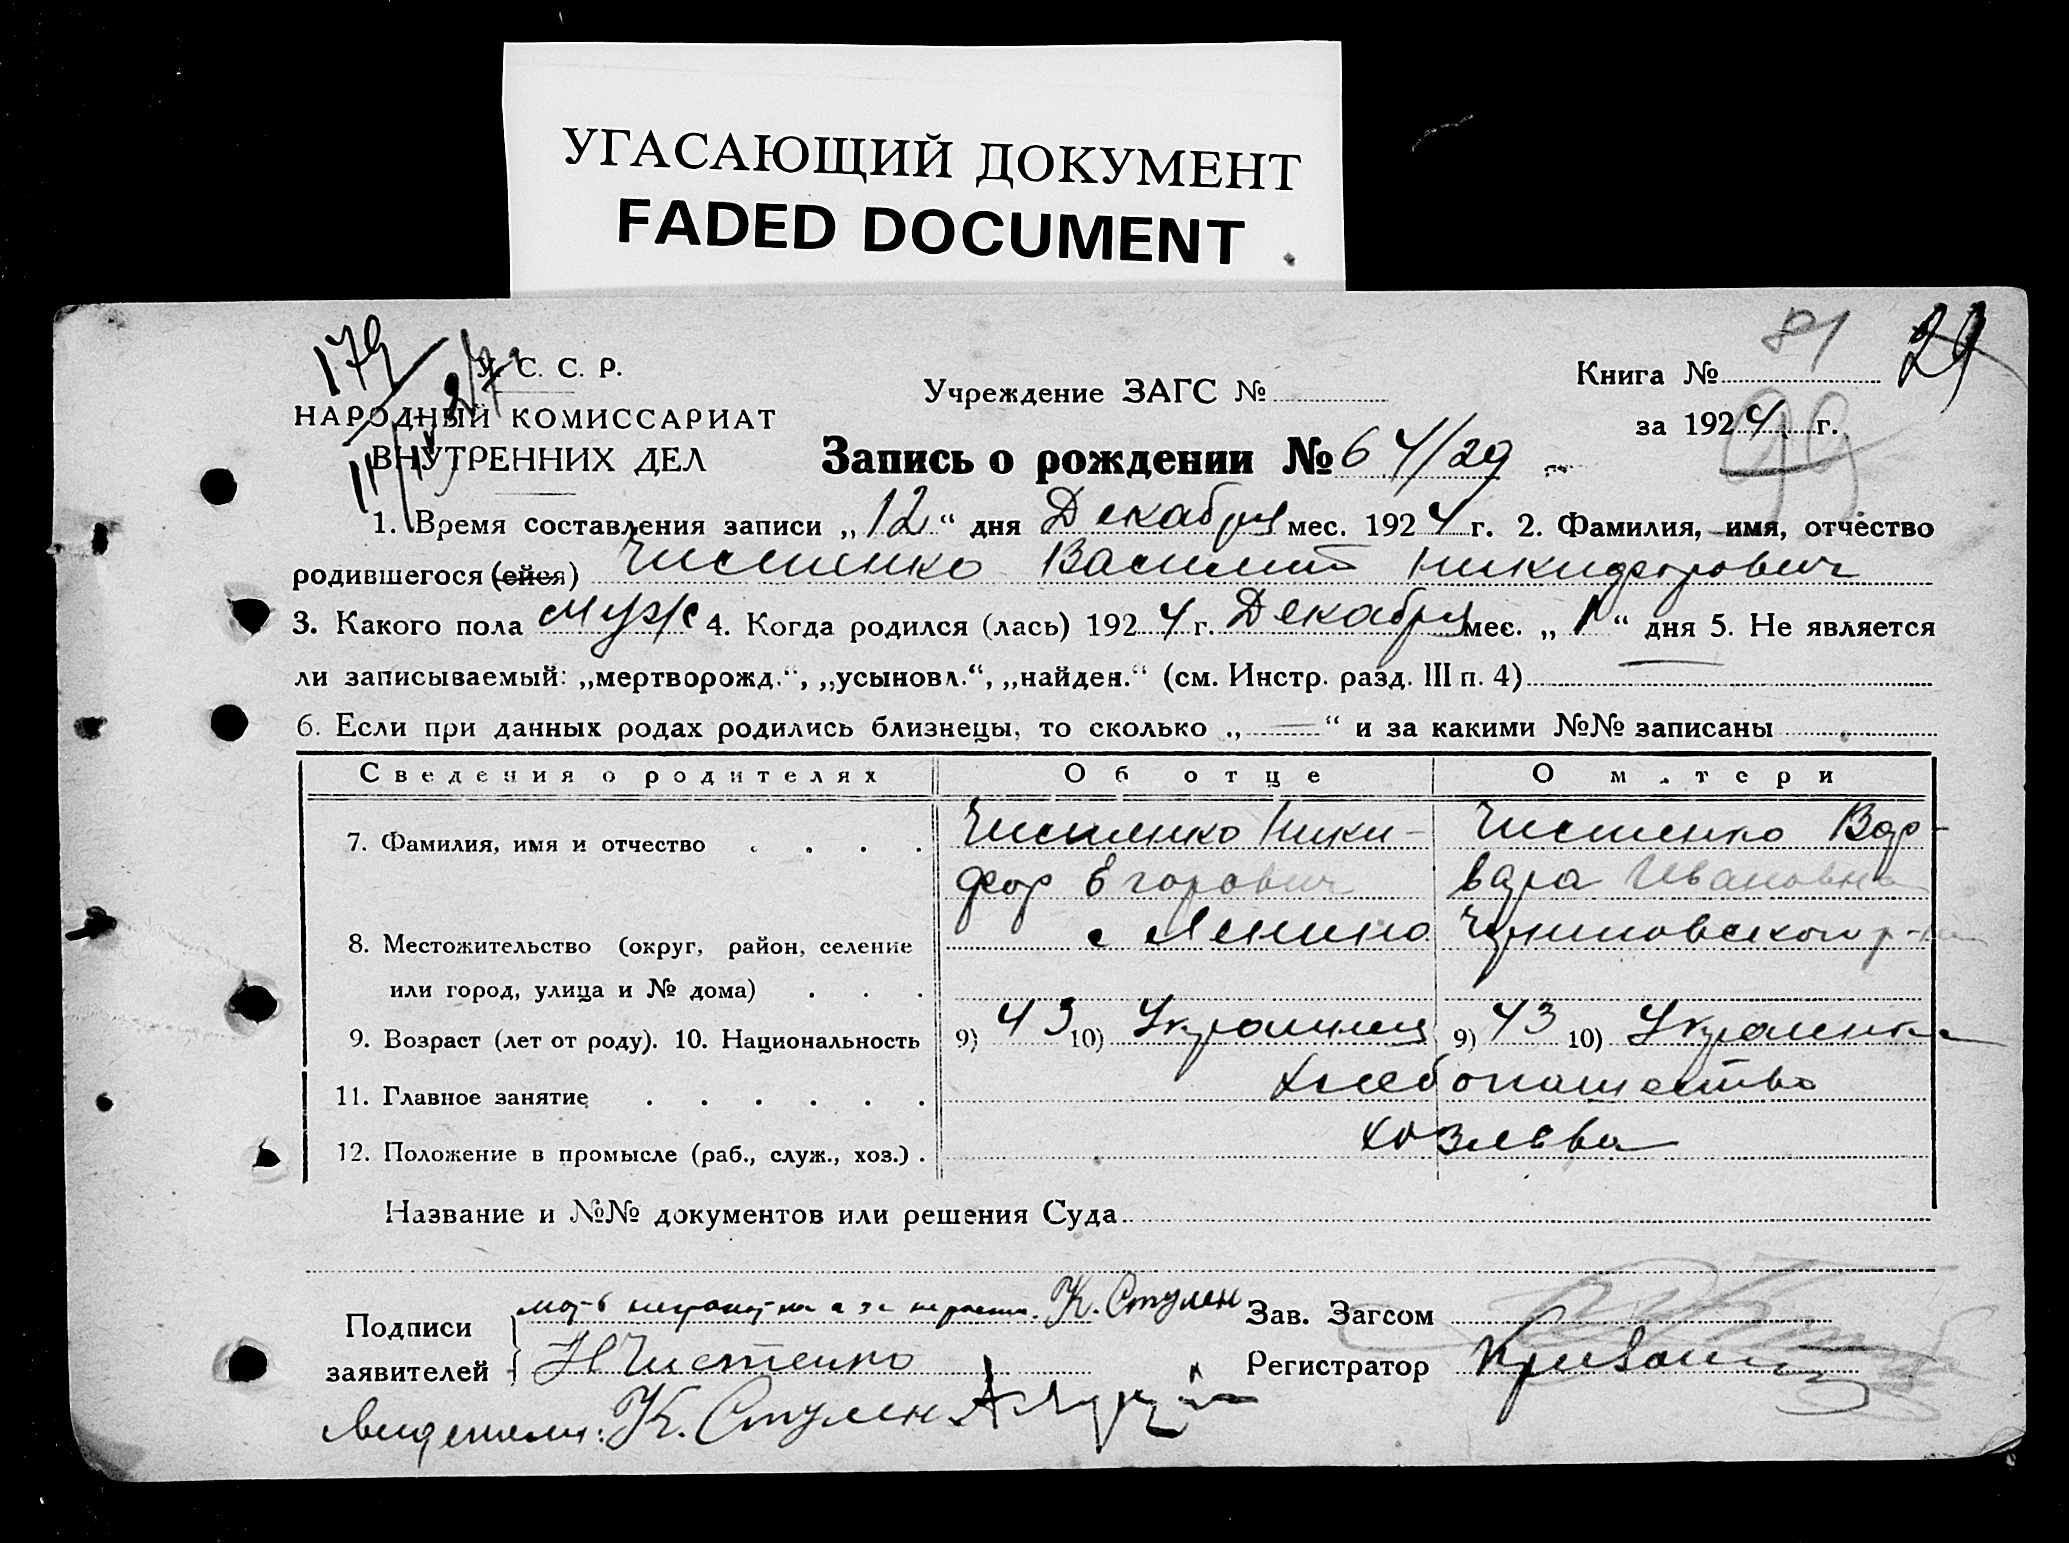 УГАСАЮЩИЙ ДОКУМЕНТ
FADED DOCUMENT
179
81 29
У. С. С. Р.
Учреждение ЗАГС №
Книга №
НАРОДНЫЙ КОМИССАРИАТ
за 1924 г.
99
ВНУТРЕННИХ ДЕЛ
Запись о рождении № 64/29
1. Время составления записи „12“ дня Декабря мес. 1924 г. 2. Фамилия, имя, отчество
родившегося (ейся) Чистенко Василий Никифорович
3. Какого пола муж 4. Когда родился (лась) 1924 г. Декабря мес. „1“ дня 5. Не является
ли записываемый: „мертворожд.“, „усыновл.“, „найден.“ (см. Инстр. разд. III п. 4) —
6. Если при данных родах родились близнецы, то сколько „—“ и за какими №№ записаны
Сведения о родителях Об отце О м.тери
7. Фамилия, имя и отчество Чистенко Ники- Чистенко Вар-
фор Егорович вара Ивановна
8. Местожительство (округ, район, селение с Ленино р-на
или город, улица и № дома)
9. Возраст (лет от роду). 10. Национальность 9) 43 10) Украинец 9) 43 10) Украинка
11. Главное занятие хлебопашество
12. Положение в промысле (раб., служ., хоз.) хозяева
Название и №№ документов или решения Суда
Подписи мать неграмотная а за К. Стулен Зав. Загсом
заявителей Н Чистенко Регистратор
Свидетели: К. Стулен